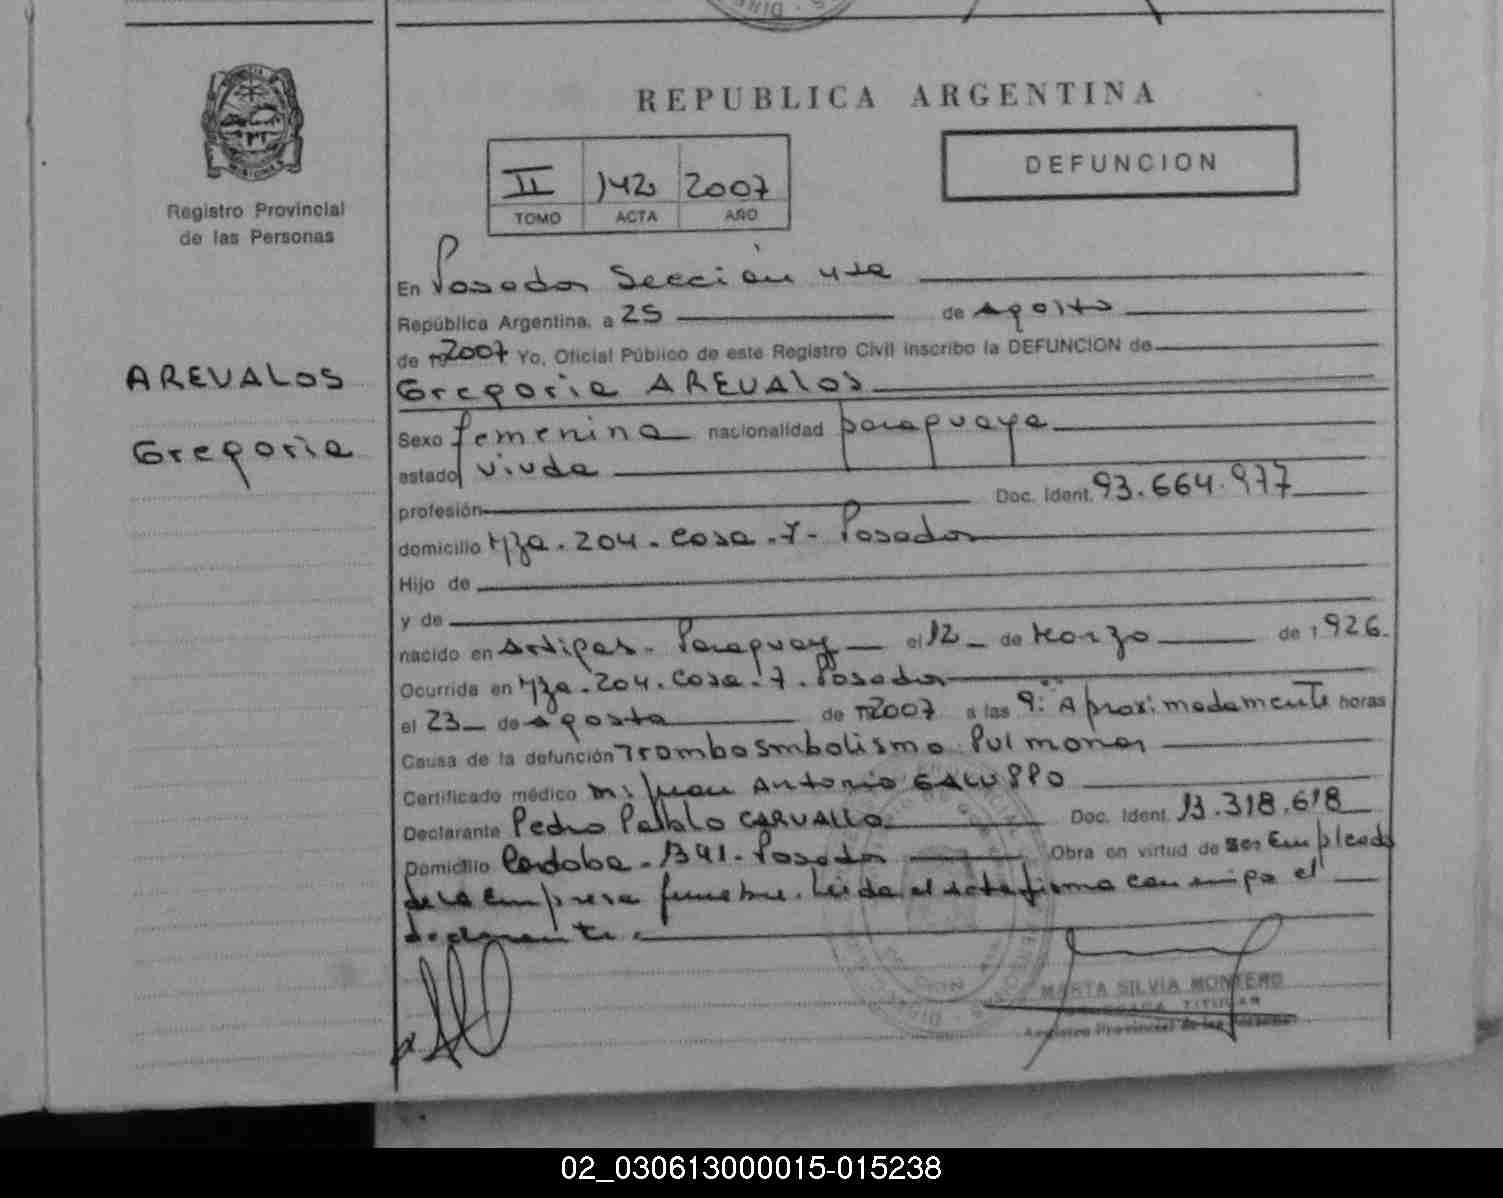 REPUBLICA ARGENTINA
DEFUNCION
II 142 2007
TOMO ACTA AÑO
Registro Provincial
de las Personas
AREVALOS
Gregoria
En Posadas Sección
República Argentina, a 25 de agosto
de 19 2007 Yo, Oficial Público de este Registro Civil inscribo la DEFUNCION de
Gregoria AREVALOS
Sexo femenina nacionalidad paraguaya
estado viuda
profesión Doc. Ident. 93.664.977
domicilio Mza. 204. Casa. 7. Posadas
Hijo de
y de
nacido en Artigas. Paraguay el 12 de Marzo de 1926
Ocurrida en Mza. 204. Casa. 7. Posadas
el 23 de agosto de 19 2007 a las 9: Aproximadamente horas
Causa de la defunción Tromboembolismo Pulmonar
Certificado médico M: Juan Antonio GALUPPO
Declarante Pedro Pablo CARVALLO Doc. Ident. 13.318.618
Domicilio Cordoba. 1341. Posadas Obra en virtud de ser Empleado
de la Empresa funebre. Leida el acta firma conmigo el
declarante.
MARTA SILVIA MONTERO
TITULAR
Registro Provincial de las Personas
02_030613000015-015238